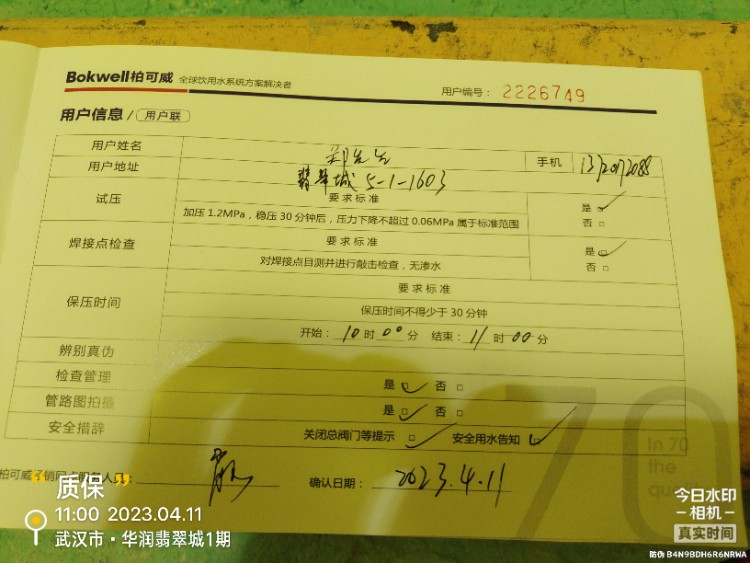 Bokwell柏可威 全球饮用水系统方案解决者
用户编号： 2226749
用户信息 / 用户联
用户姓名 郑先生 手机
用户地址 翡翠城 5-1-1603
试压 要求标准 是
加压 1.2MPa，稳压 30 分钟后，压力下降不超过 0.06MPa 属于标准范围 否
焊接点检查 要求标准 是
对焊接点目测并进行敲击检查，无渗水 否
保压时间 要求标准
保压时间不得少于 30 分钟
开始： 10 时 00 分 结束： 11 时 00 分
辨别真伪
检查管理 是 否
管路图拍摄 是 否
安全措辞 关闭总阀门等提示 安全用水告知
柏可威 确认日期： 2023.4.11
70
In 70
the
质保
11:00 2023.04.11
武汉市·华润翡翠城1期
今日水印
相机
真实时间
防伪 B4N9BDH6R6NRWA